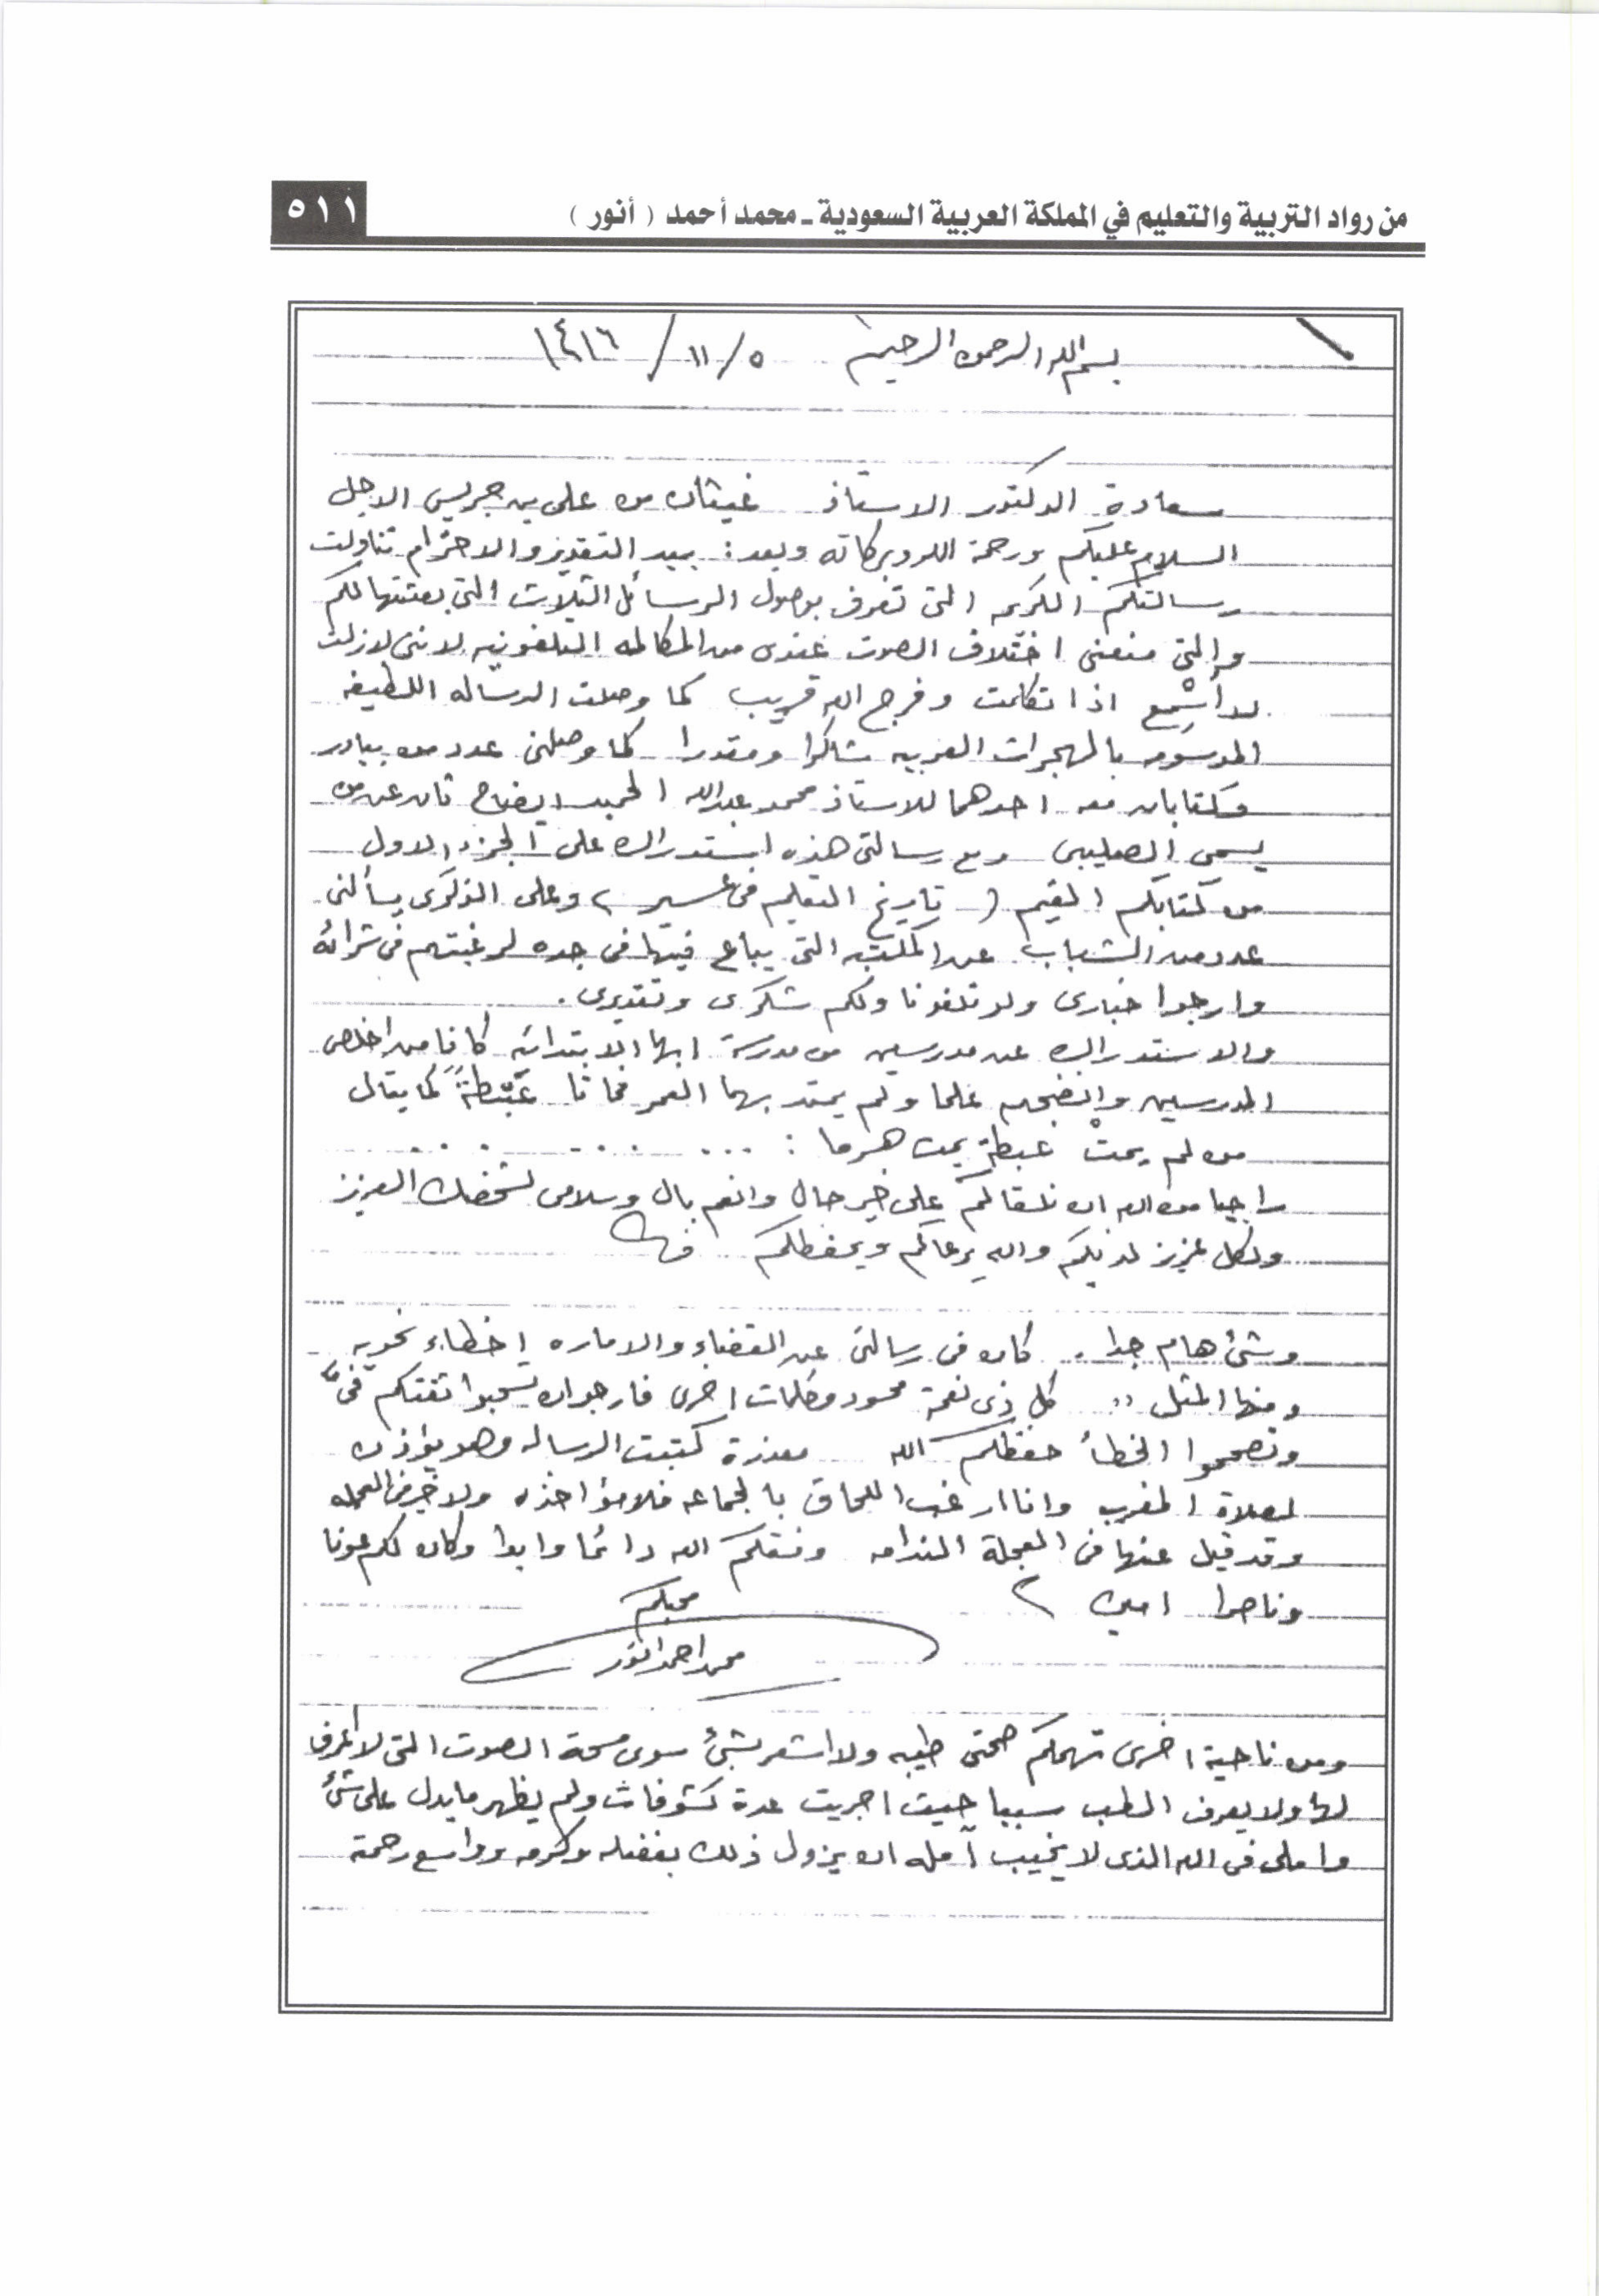 من رواد التربية والتعليم في المملكة العربية السعودية ـ محمد أحمد ( أنور )
٥١١
بسم الله الرحمن الرحيم ٥/ ١١/ ١٤١٦
سعادة الدكتور الاستاذ غيثان بن على بن جريس الاجل
السلام عليكم ورحمة الله وبركاته وبعد : بيد التقدير والاحترام تناولت
رسالتكم الكريمه التى تعرف بوصول الرسائل الثلاث التى بعثتها لكم
والتى منعنى اختلاف الصوت عندى من المكالمه التلفونيه لاننى لازلت
لا أسْمِع اذا تكلمت وفرج الله قريب كما وصلت الرساله اللطيفه
الموسومه بالهجرات العربيه شاكرا ومقدرا كما وصلنى عدد من بيادر
وكتابان معه احدهما للاستاذ محمد عبدالله الحميد ايضاح ثان عن من
يسمى الصليبى ومع رسالتى هذه استدراك على الجزء الاول
من كتابكم القيم ( تاريخ التعليم فى عسير ) وعلى الذكرى يسألنى
عدد من الشباب عن المكتبه التى يباع فيها فى جده لرغبتهم فى شرائه
وارجوا خبارى ولو تلفونا ولكم شكرى وتقديرى .
والاستدراك عن مدرسين من مدرسة ابها الابتدائيه كانا من اخلص
المدرسين وانضجهم علما ولم يمتد بهما العمر فماتا عَبْطةً كما يقال
من لم يمتْ عبطة يمت هرما : ... . . . . . . .
راجيا من الله ان نلقاكم على خير حال وانعم بال وسلامى لشخصك العزيز
ولكل عزيز لديكم والله يرعاكم ويحفظكم
وشئ هام جدا . كان فى رسالتى عن القضاء والاماره اخطاء نحويه
ومنها المثل " كل ذى نعمة محسود وكلمات اخرى فارجوان لا تسحبوا ثقتكم فى
وتصححوا الخطأ حفظكم الله معذرة كتبت الرساله وهو يؤذن
لصلاة المغرب وانا ارغب اللحاق بالجماعه فلا مؤاخذه ولا خير فى العجله
وقد قيل عنها فى العجلة الندامه وفقكم الله دائما وابدا وكان لكم عونا
وناصرا امين
محبكم
محمد احمد انور
ومن ناحية اخرى تهمكم صحتى طيبه ولا اشعر بشئ سوى بحة الصوت التى لا اعرف
لها ولا يعرف الطب سببا حيث اجريت عدة كشوفات ولم يظهر ما يدل على شئ
واملى فى الله الذى لا يخيب آمله ان يزول ذلك بفضله وكرمه وواسع رحمته